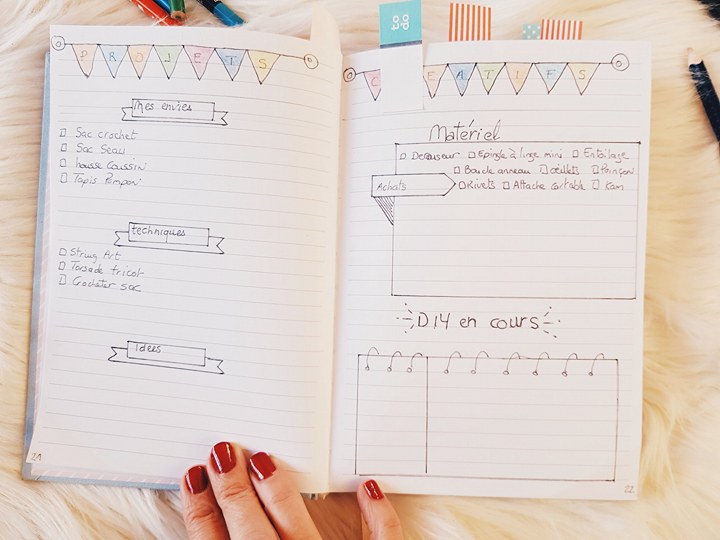 PROJETS
Mes envies
Sac crochet
Sac Seau
housse Coussin
Tapis Pompon
techniques
String Art
Torsade tricot
Crocheter sac
idées
21
C EATIFS
Matériel
Decouseur Epingle à linge mini Entoilage
Boucle anneau œillets Poinçon
Achats Rivets Attache cartable Kam
DIY en cours
22